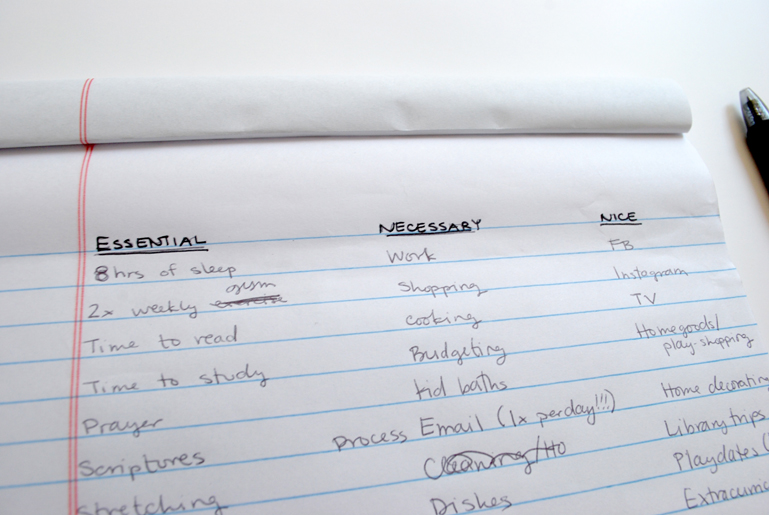 ESSENTIAL
8 hrs of sleep
gym
2x weekly exercise
Time to read
Time to study
Prayer
Scriptures
Stretching
NECESSARY
Work
Shopping
cooking
Budgeting
kid baths
Process Email (1x per day!!!)
Cleaning/HO
Dishes
NICE
FB
Instagram
TV
Homegoods/
play-shopping
Home decoratin
Library trips
Playdates (
Extracurric